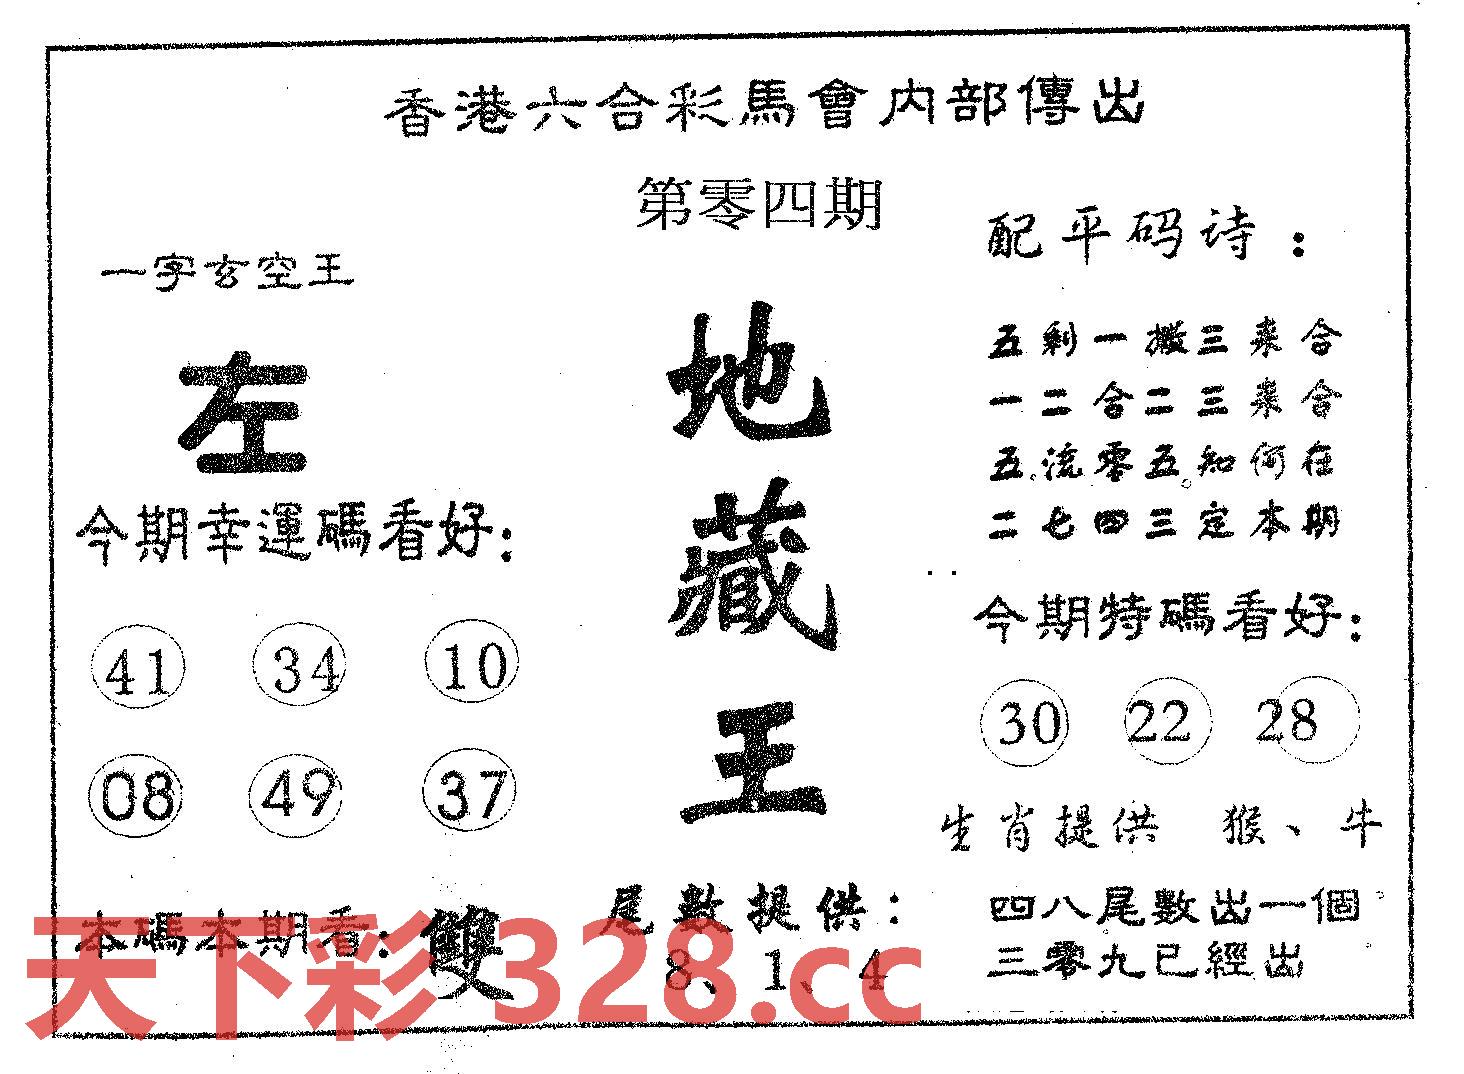 香港六合彩馬會内部傳出
第零四期
一字玄空王
左
今期幸運碼看好：
41 34 10
08 49 37
本碼本期看：雙
地藏王
尾數提供：
8、1、4
配平码诗：
五剩一搬三来合
一二合二三来合
五流零五知何在
二七四三定本期
今期特碼看好：
30 22 28
生肖提供 猴、牛
四八尾數出一個
三零九已經出
天下彩 328.cc